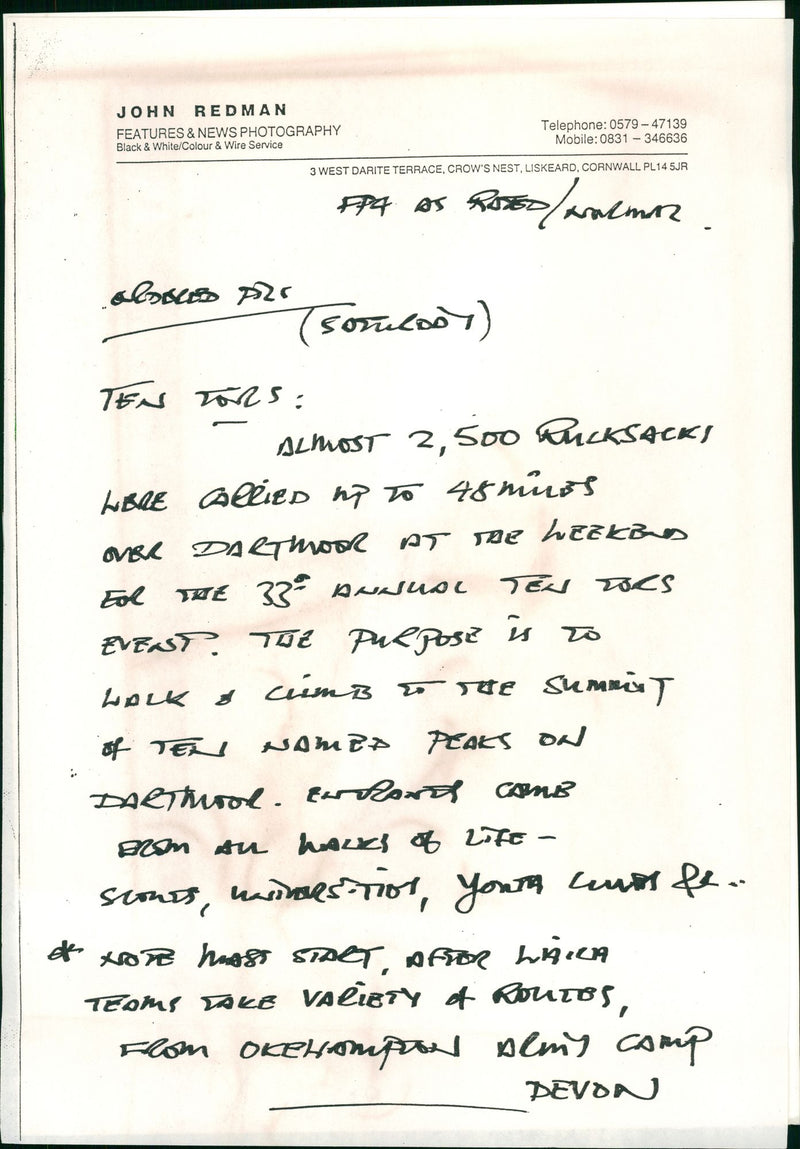 JOHN REDMAN
FEATURES & NEWS PHOTOGRAPHY
Black & White/Colour & Wire Service
Telephone: 0579 – 47139
Mobile: 0831 – 346636
3 WEST DARITE TERRACE, CROW'S NEST, LISKEARD, CORNWALL PL14 5JR
FP4 AS RATED/NORMAL.
ORDERED PIX
(SATURDAY)
TEN TORS:
ALMOST 2,500 RUCKSACKS
WERE CARRIED UP TO 45 MILES
OVER DARTMOOR AT THE WEEKEND
FOR THE 33rd ANNUAL TEN TORS
EVENT. THE PURPOSE IS TO
WALK & CLIMB TO THE SUMMIT
OF TEN NAMED PEAKS ON
DARTMOOR. ENTRANTS CAME
FROM ALL WALKS OF LIFE –
SCOUTS, UNIVERSITIES, YOUTH CLUBS
* NOTE MASS START, AFTER WHICH
TEAMS TAKE VARIETY OF ROUTES,
FROM OKEHAMPTON ARMY CAMP
DEVON